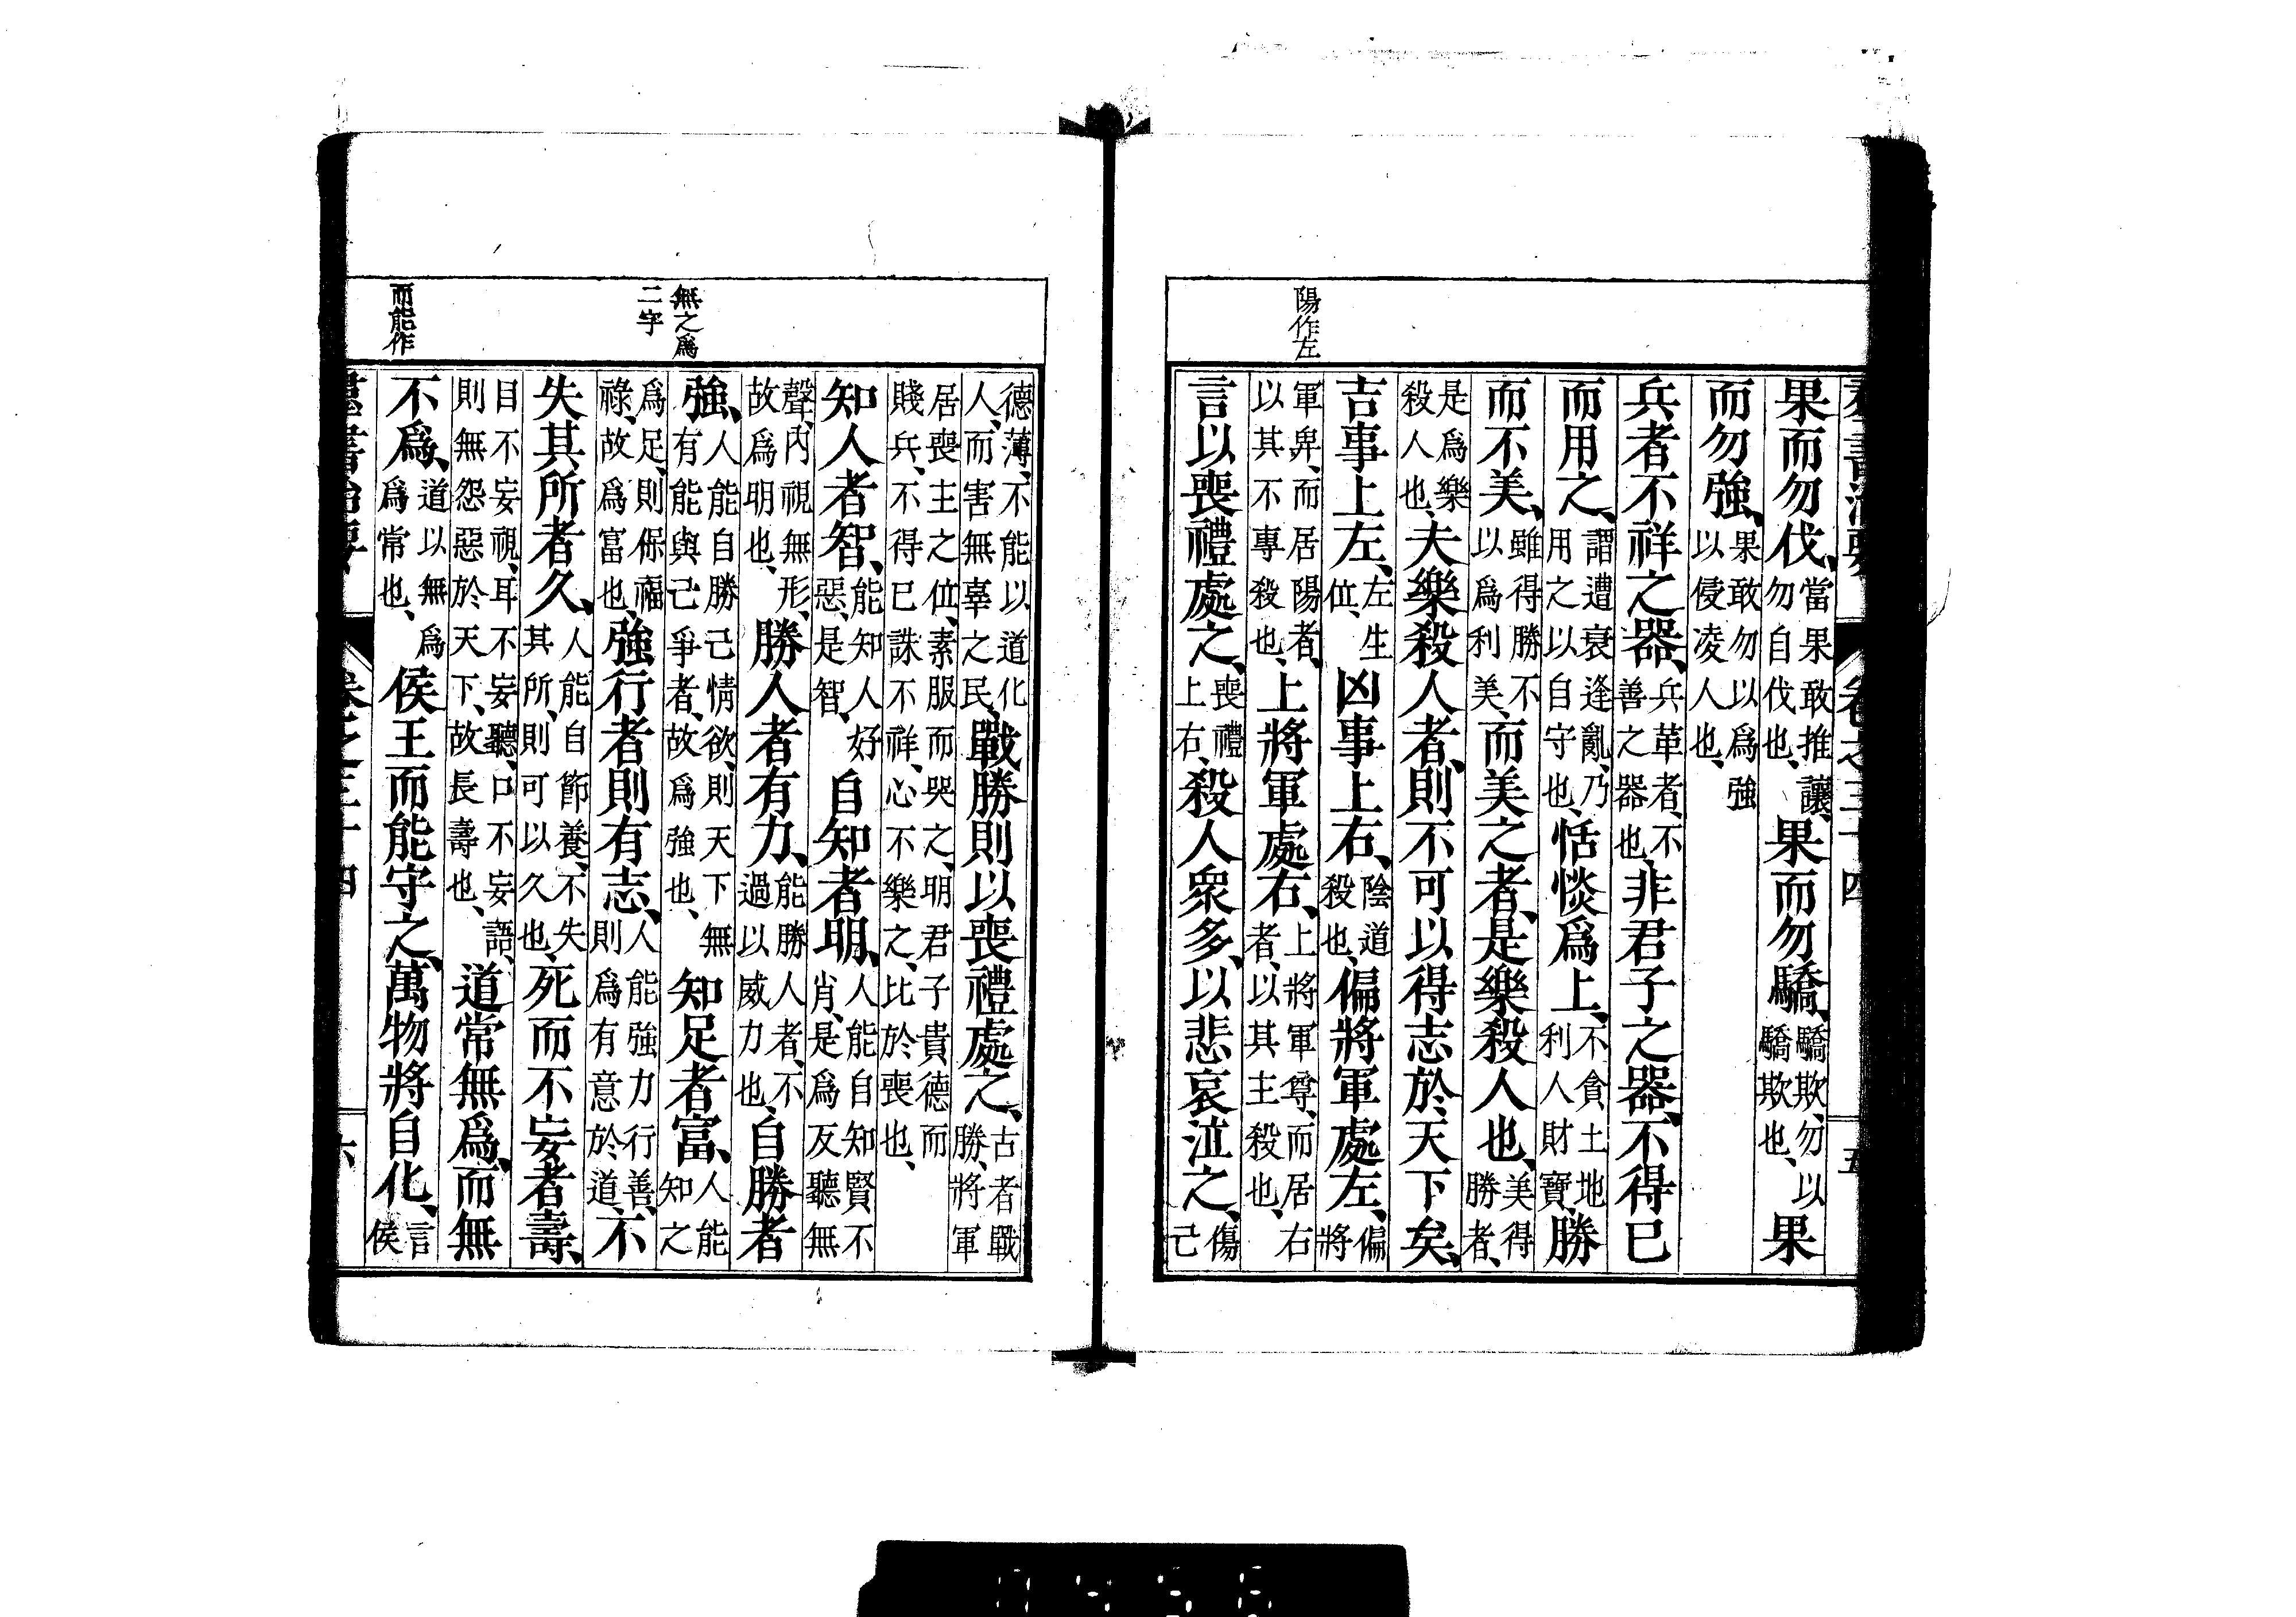 群書治要 卷之三十四 五
陽作左
果而勿伐、當果敢推讓、勿自伐也、果而勿驕、驕欺、勿以驕欺也、果
而勿強、果敢勿以爲強以侵凌人也、
兵者不祥之器、兵革者、不善之器也、非君子之器、不得已
而用之、謂遭衰逢亂、乃用之以自守也、恬惔爲上、不貪土地利人財寶、勝
而不美、雖得勝不以爲利美、而美之者、是樂殺人也、美得勝者、
是爲樂殺人也、夫樂殺人者、則不可以得志於天下矣、
吉事上左、左生位、凶事上右、陰道殺也、偏將軍處左、偏將
軍卑、而居陽者、以其不專殺也、上將軍處右、上將軍尊、而居右者、以其主殺也、
言以喪禮處之、喪禮上右、殺人衆多、以悲哀泣之、傷己
無之爲
二字
而能作
德薄、不能以道化人、而害無辜之民、戰勝則以喪禮處之、古者戰勝、將軍
居喪主之位、素服而哭之、明君子貴德而賤兵、不得已誅不祥、心不樂之、比於喪也、
知人者智、能知人好惡、是智、自知者明、人能自知賢不肖、是爲反聽無
聲、內視無形、故爲明也、勝人者有力、能勝人者、不過以威力也、自勝者
強、人能自勝己情欲、則天下無有能與己爭者、故爲強也、知足者富、人能知之
爲足、則保福祿、故爲富也、強行者則有志、人能強力行善、則爲有意於道、不
失其所者久、人能自節養、不失其所、則可以久也、死而不妄者壽、
目不妄視、耳不妄聽、口不妄語、則無怨惡於天下、故長壽也、道常無爲、而無
不爲、道以無爲爲常也、侯王而能守之、萬物將自化、言侯
群書治要 卷之三十四 六